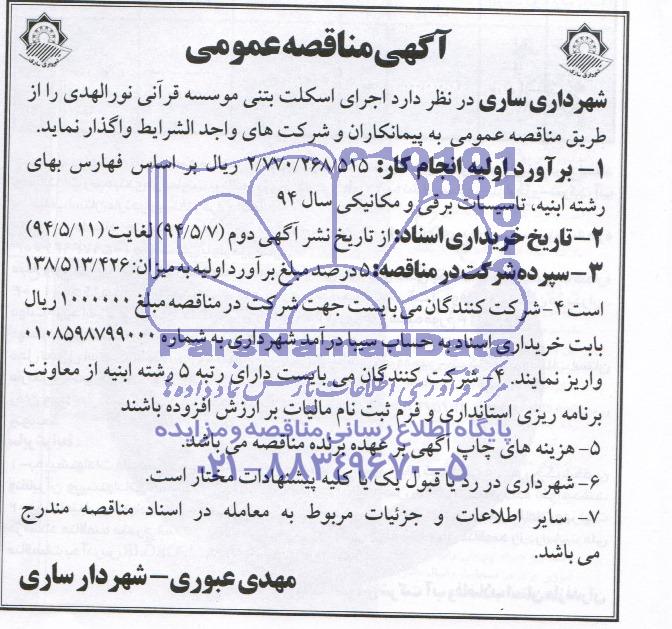 آگهی مناقصه عمومی
شهرداری ساری در نظر دارد اجرای اسکلت بتنی موسسه قرآنی نورالهدی را از
طریق مناقصه عمومی به پیمانکاران و شرکت های واجد الشرایط واگذار نماید.
۱- برآورد اولیه انجام کار: ۲/۷۷۰/۲۶۸/۵۱۵ ریال بر اساس فهارس بهای
رشته ابنیه، تاسیسات برقی و مکانیکی سال ۹۴
۲- تاریخ خریداری اسناد: از تاریخ نشر آگهی دوم (۹۴/۵/۷) لغایت (۹۴/۵/۱۱)
۳- سپرده شرکت در مناقصه: ۵ درصد مبلغ برآورد اولیه به میزان: ۱۳۸/۵۱۳/۴۲۶
است ۴- شرکت کنندگان می بایست جهت شرکت در مناقصه مبلغ ۱۰۰۰۰۰۰ ریال
بابت خریداری اسناد به حساب سیبا درآمد شهرداری به شماره ۰۱۰۸۵۹۸۷۹۹۰۰۰
واریز نمایند. ۴- شرکت کنندگان می بایست دارای رتبه ۵ رشته ابنیه از معاونت
برنامه ریزی استانداری و فرم ثبت نام مالیات بر ارزش افزوده باشند
۵- هزینه های چاپ آگهی بر عهده برنده مناقصه می باشد.
۶- شهرداری در رد یا قبول یک یا کلیه پیشنهادات مختار است.
۷- سایر اطلاعات و جزئیات مربوط به معامله در اسناد مناقصه مندرج
می باشد.
مهدی عبوری - شهردار ساری
ParsNamadData
مرکز فرآوری اطلاعات پارس نماد داده ها
پایگاه اطلاع رسانی مناقصه و مزایده
۰۲۱-۸۸۳۴۹۶۷۰-۵